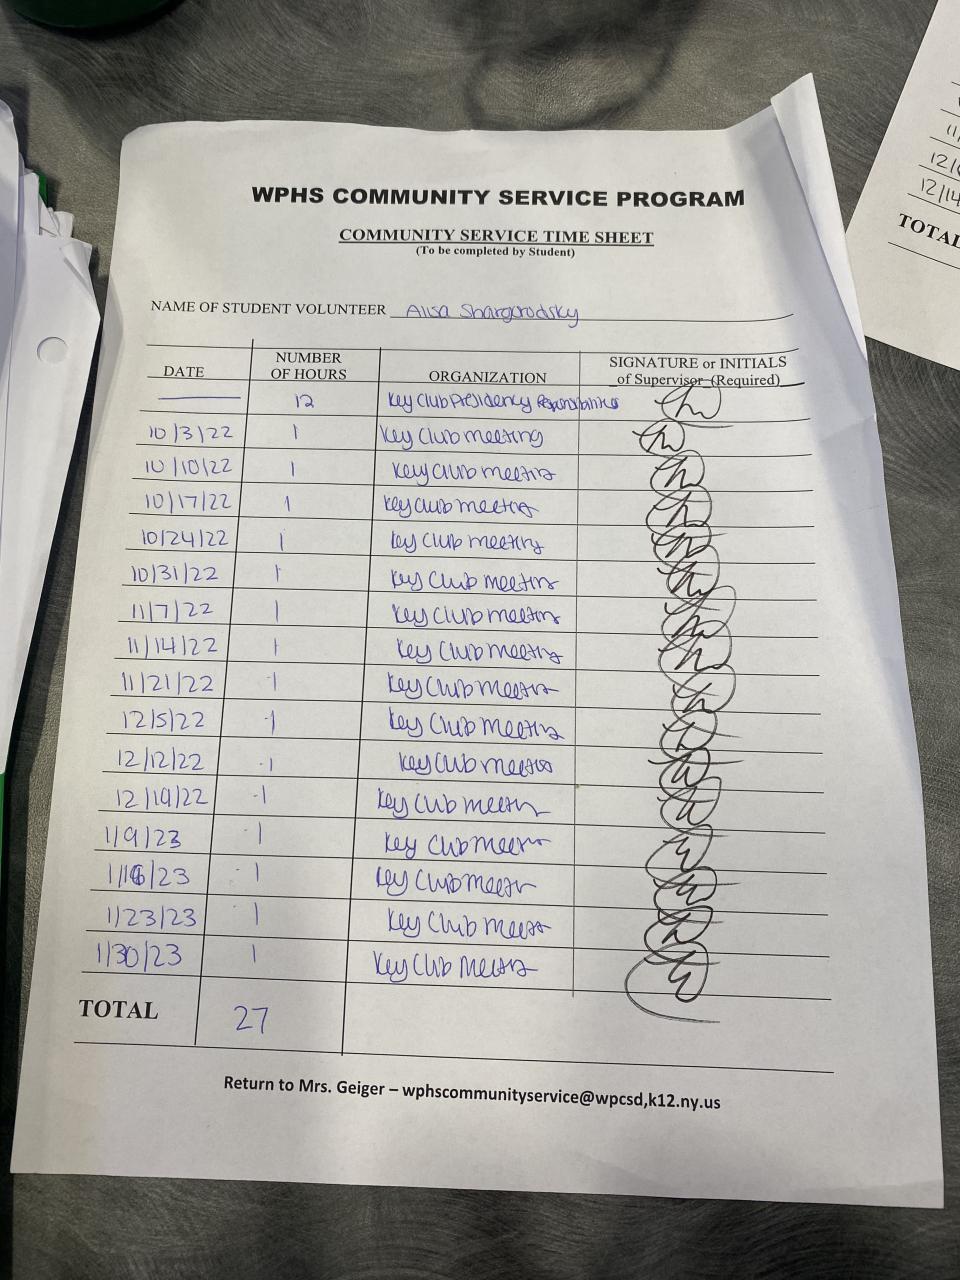 WPHS COMMUNITY SERVICE PROGRAM
COMMUNITY SERVICE TIME SHEET
(To be completed by Student)
NAME OF STUDENT VOLUNTEER Alisa Shargorodsky
DATE NUMBER OF HOURS ORGANIZATION SIGNATURE or INITIALS of Supervisor (Required)
12 Key Club Presidency Responsibilities
10/3/22 1 Key Club meeting
10/10/22 1 Key Club meeting
10/17/22 1 Key Club meeting
10/24/22 1 Key Club meeting
10/31/22 1 Key Club meeting
11/7/22 1 Key Club meeting
11/14/22 1 Key Club meeting
11/21/22 1 Key Club meeting
12/5/22 1 Key Club meeting
12/12/22 1 Key Club meeting
12/19/22 1 Key Club meeting
1/9/23 1 Key Club meeting
1/16/23 1 Key Club meeting
1/23/23 1 Key Club meeting
1/30/23 1 Key Club meeting
TOTAL 27
Return to Mrs. Geiger – wphscommunityservice@wpcsd,k12.ny.us
12/14
TOTAL